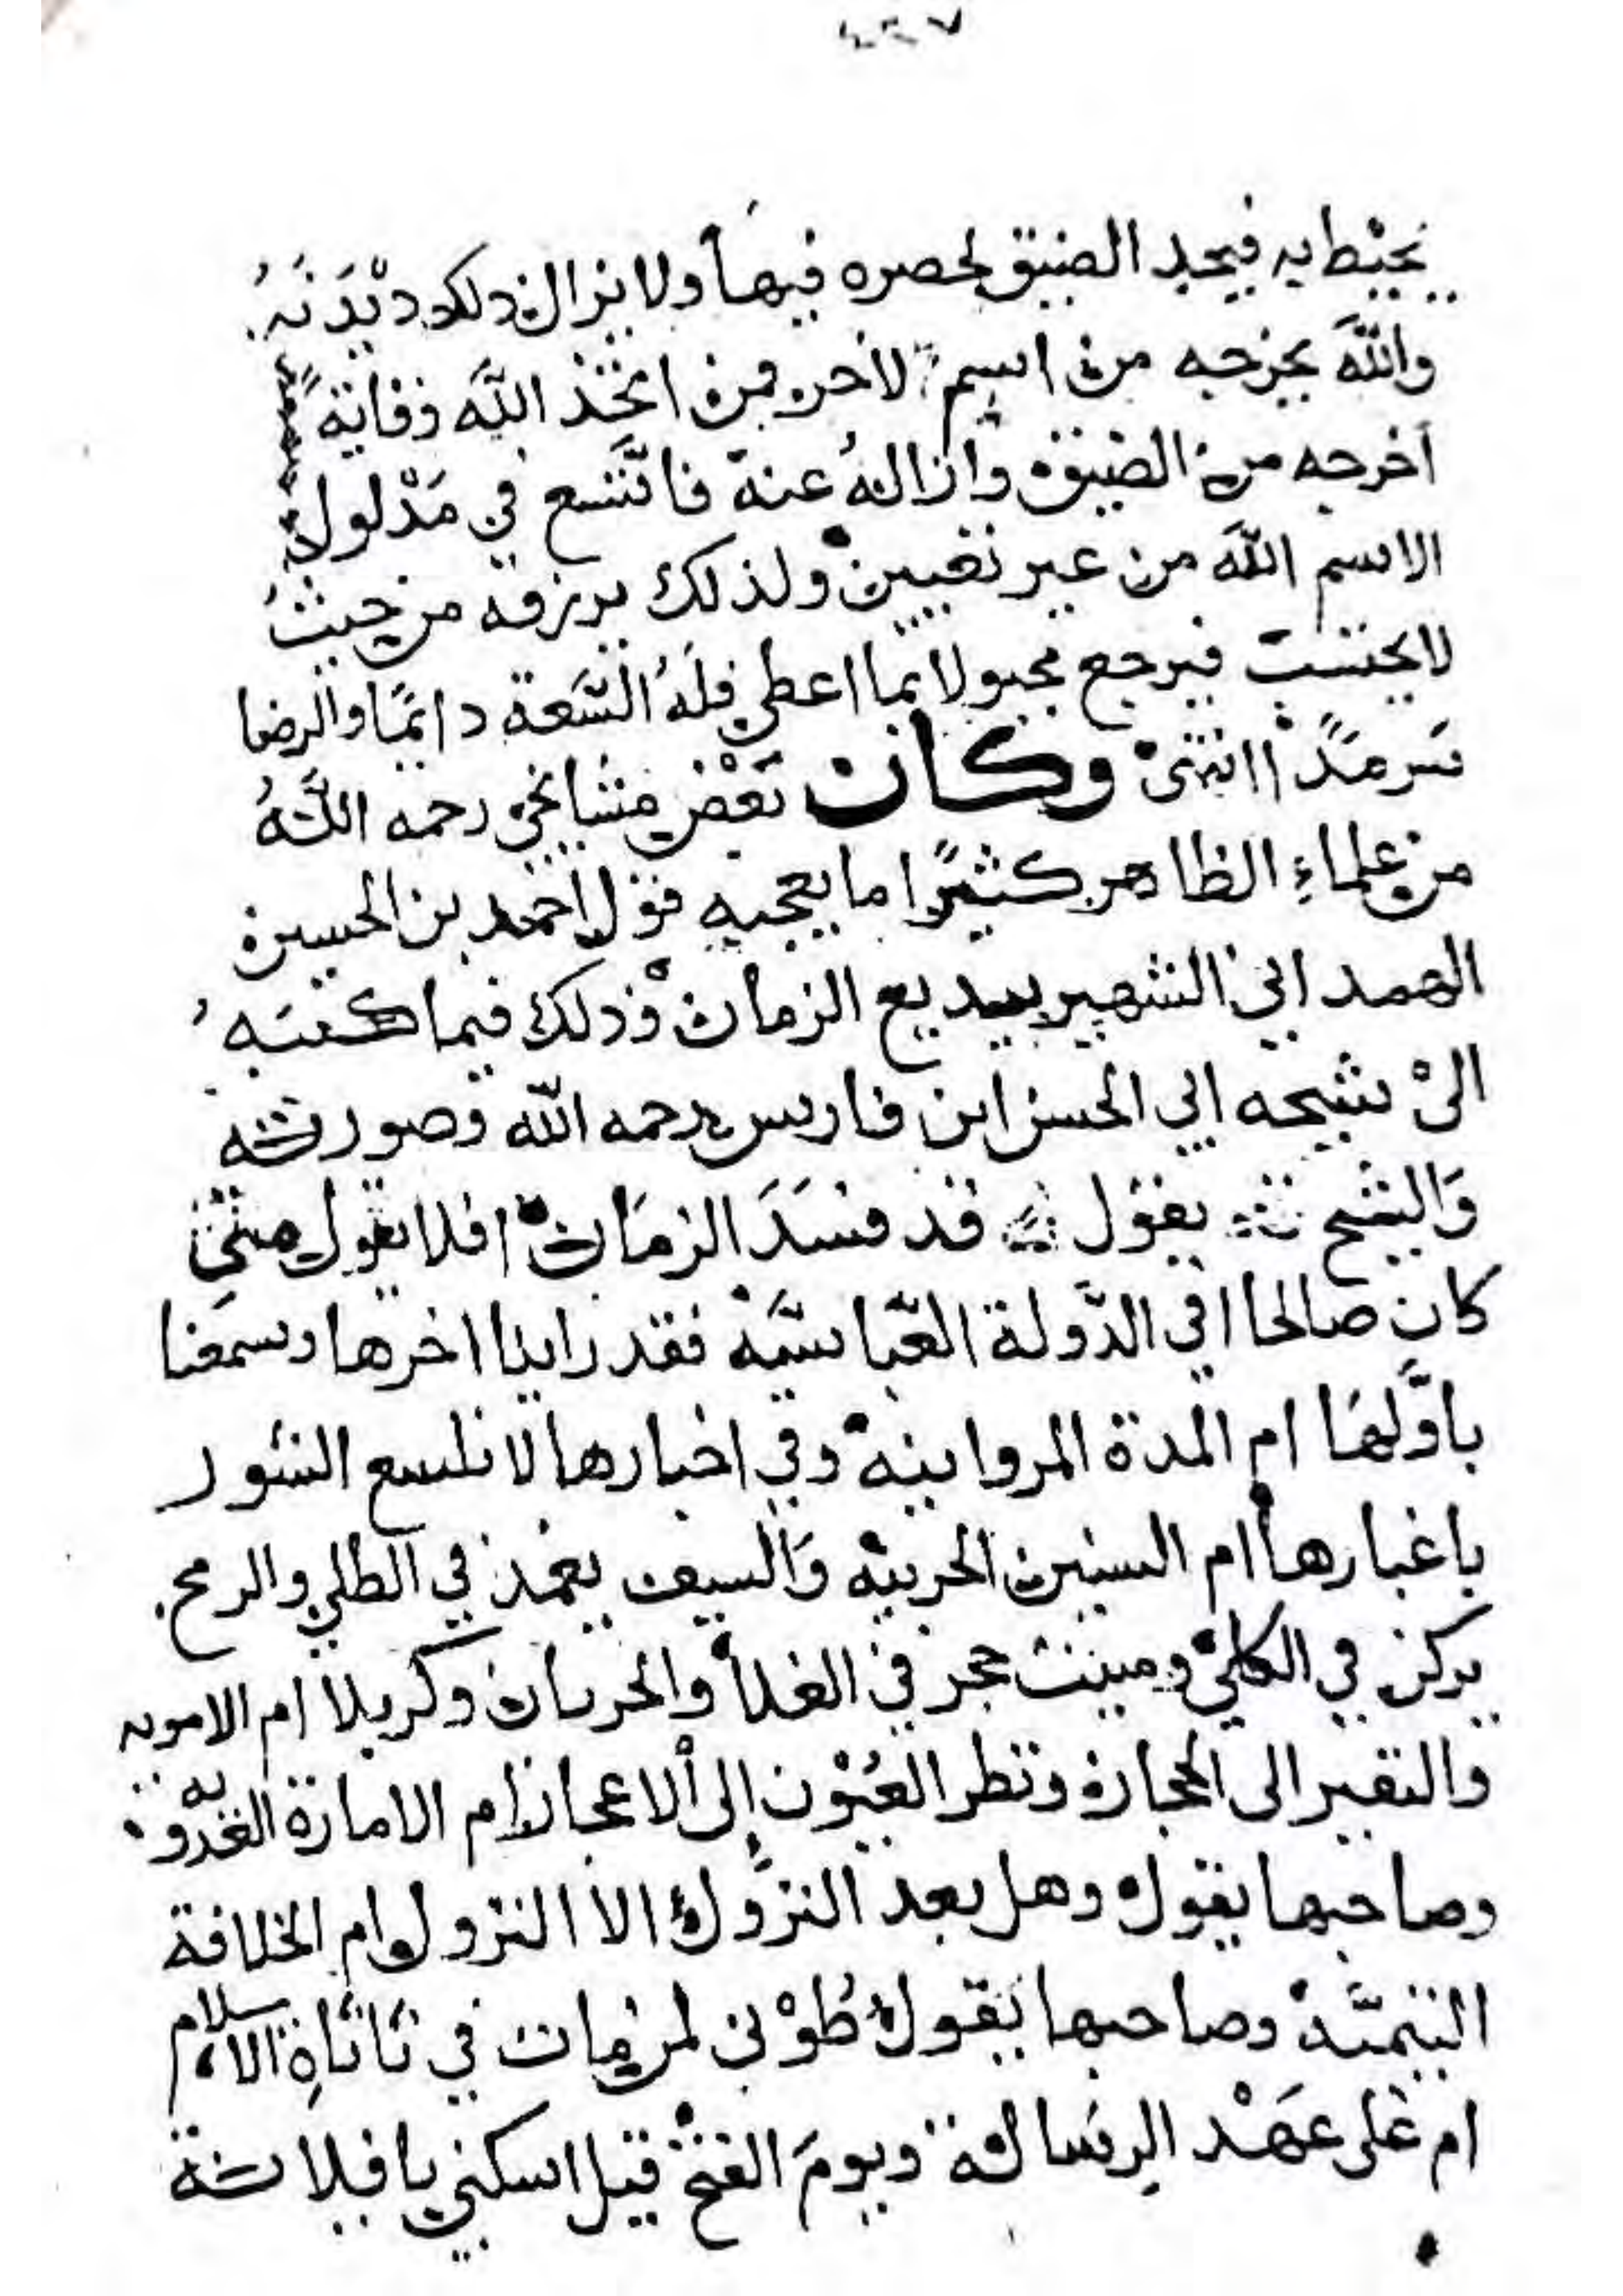 يحيط به فيجد الضيق لحصره فيها ولا يزال ذلك ديدنه
والله يخرجه من اسم لاخر فمن اتخذ الله وقاية
أخرجه من الضيق وازاله عنه فاتسع في مدلول
الاسم الله من غير تعيين ولذلك يرزقه من حيث
لا يحتسب فيرجع مجبولا بما اعطي فله السعة دائما والرضا
سرمدا انتهى وكان بعض مشايخي رحمه الله
من علماء الظاهر كثيرا ما يعجبه قول احمد بن الحسين
الهمداني الشهير ببديع الزمان وذلك فيما كتبه
الى شيخه ابي الحسن ابن فارس رحمه الله وصورته
والشيخ يقول قد فسد الزمان افلا يقول متى
كان صالحا افي الدولة العباسية فقد راينا اخرها وسمعنا
باولها ام المدة المروانية وفي اخبارها لا تلسع الشور
باغبارها ام السنين الحربية والسيف يغمد في الطلي والرمح
يركز في الكلي ومبيت حجر في الفلا والحرتان وكربلا ام الاموية
والنفير الى الحجازة وتطر العيون الى الاعجاز ام الامارة العدوية
وصاحبها يقول وهل بعد النزول الا النزول ام الخلافة
التيمية وصاحبها يقول طوبى لمن مات في نأنأة الاسلام
ام على عهد الرسالة ويوم الفتح قيل اسكتي يا فلانة